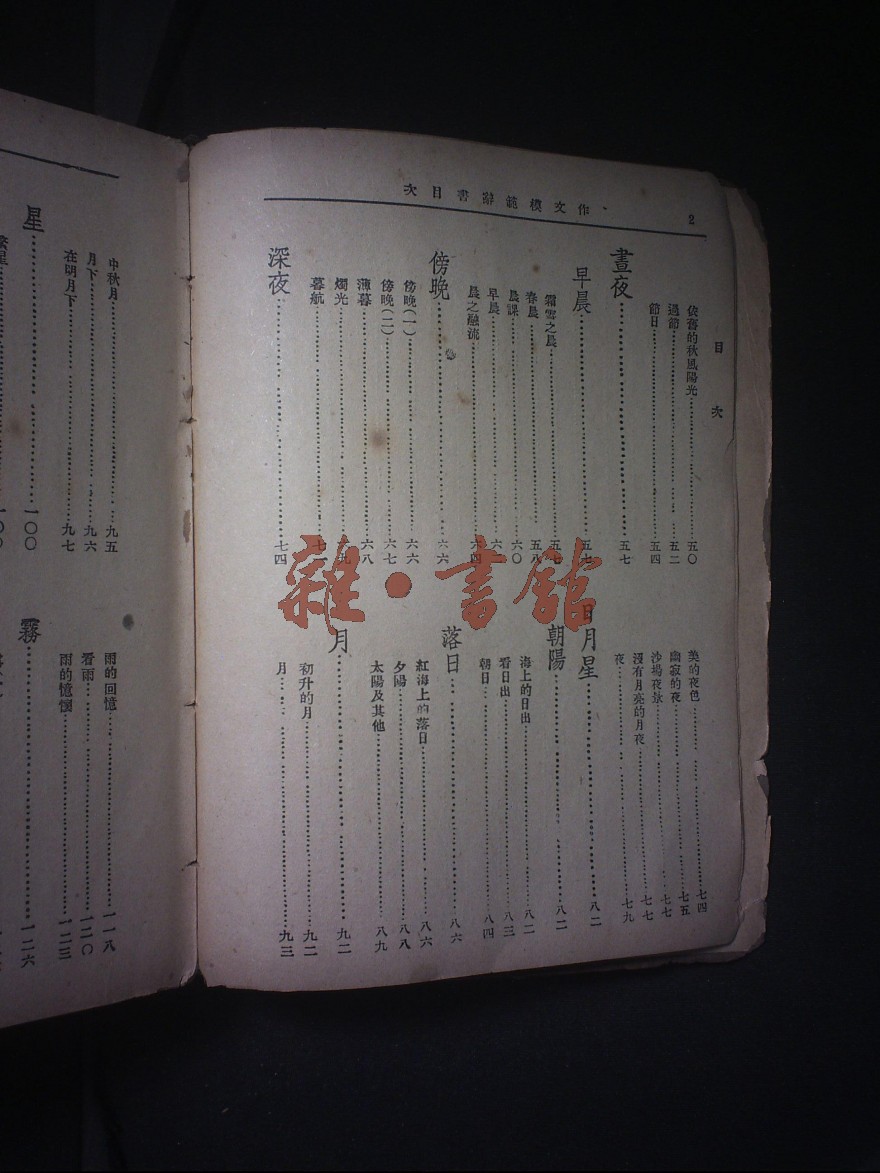 作文模範辭書目次
2
目次
依舊的秋風陽光……五〇
過節……五二
節日……五四
晝夜……五七
早晨……五七
霜雪之晨……五七
春晨……五八
晨課……六〇
早晨……六
晨之融流……六四
傍晚……六六
傍晚(一)……六六
傍晚(二)……六七
薄暮……六八
燭光……九
暮航……七
深夜……七四
美的夜色……七四
幽寂的夜……七五
沙場夜景……七七
沒有月亮的月夜……七七
夜……七九
日月星……八二
朝陽……八二
海上的日出……八二
看日出……八三
朝日……八四
落日……八六
紅海上的落日……八六
夕陽……八八
太陽及其他……八九
月……九二
初升的月……九二
月……九三
中秋月……九五
月下……九六
在明月下……九七
星……一〇〇
繁星……一〇〇
雨的回憶……一一八
看雨……一二〇
雨的憶懷……一二三
霧……一二六
雜·書館